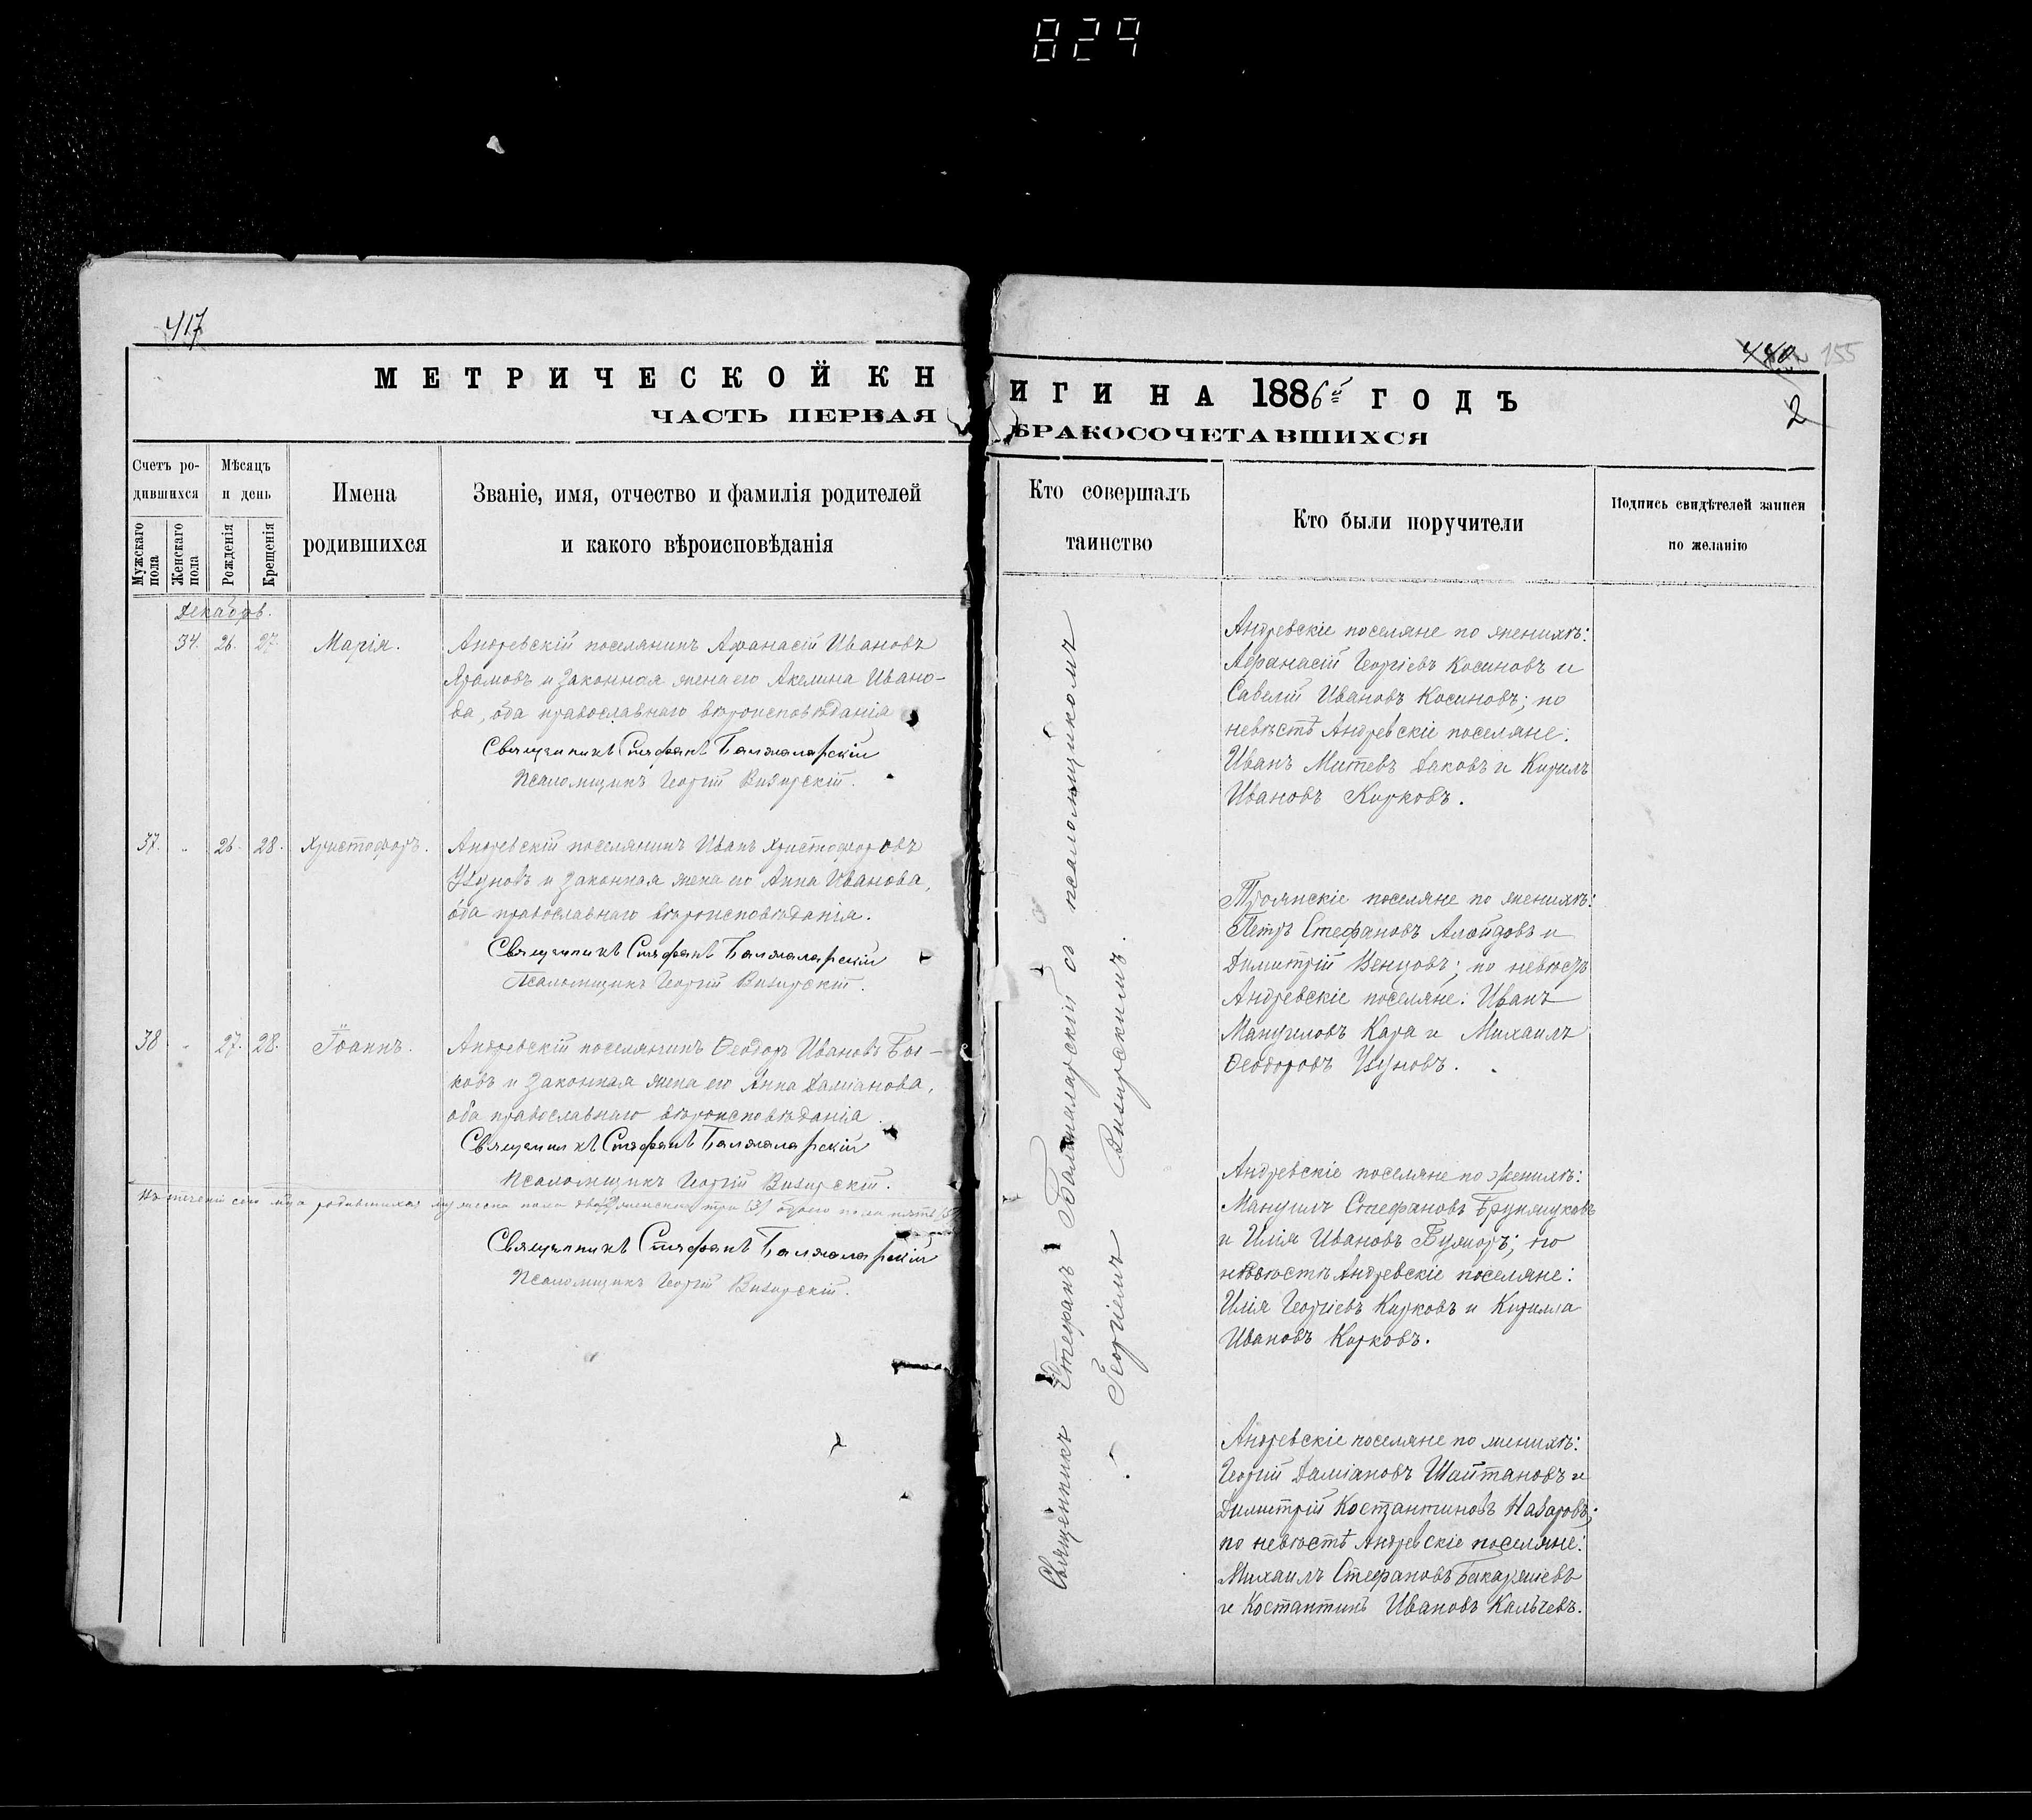 829
417
МЕТРИЧЕСКОЙ КН
ЧАСТЬ ПЕРВАЯ
Счетъ ро-
дившихся
Мѣсяцъ
и день
Имена
родившихся
Званіе, имя, отчество и фамилія родителей
и какого вѣроисповѣданія
Мужскаго
пола
Женскаго
пола
Рожденія
Крещенія
Декабрь.
34. 26. 27. Марія. Андревскій поселянинъ Афанасій Ивановъ
и законная жена его Акелина Ивано-
ва, оба православнаго вѣроисповѣданія
Священникъ Стефанъ Балжаларскій
Псаломщикъ Георгій Визирскій.
37. „ 26. 28. Христофоръ. Андревскій поселянинъ Иванъ Христофоровъ
Узуновъ и законная жена его Анна Иванова,
оба православнаго вѣроисповѣданія.
Священникъ Стефанъ Балжаларскій
Псаломщикъ Георгій Визирскій.
38 „ 27. 28. Іоаннъ. Андревскій поселянинъ Ѳеодоръ Ивановъ
и законная жена его Анна Даміанова,
оба православнаго вѣроисповѣданія.
Священникъ Стефанъ Балжаларскій
Псаломщикъ Георгій Визирскій.
Въ теченіи сего м-ца родившихся мужеска пола два (2) женска три (3) обоего пола пять (5)
Священникъ Стефанъ Балжаларскій
Псаломщикъ Георгій Визирскій.
155
2
ИГИ НА 1886й ГОДЪ
БРАКОСОЧЕТАВШИХСЯ
Кто совершалъ
таинство
Кто были поручители
Подпись свидѣтелей записи
по желанію
Священникъ Стефанъ Балжаларскій съ псаломщикомъ
Георгіемъ Визирскимъ.
Андревскіе поселяне по женихѣ:
Афанасій Георгіевъ Косиновъ и
Савелій Ивановъ Косиновъ; по
невѣстѣ Андревскіе поселяне:
Иванъ Митевъ Даковъ и Кирилъ
Ивановъ Курковъ.
Троянскіе поселяне по женихѣ:
Петръ Стефановъ и
Димитрій Венцовъ; по невѣстѣ
Андревскіе поселяне: Иванъ
Мануиловъ Кара и Михаилъ
Ѳеодоровъ Узуновъ.
Андревскіе поселяне по женихѣ:
Мануилъ Стефановъ
и Илія Ивановъ Бужоръ; по
невѣстѣ Андревскіе поселяне:
Илія Георгіевъ Курковъ и Кирилла
Ивановъ Курковъ.
Андревскіе поселяне по женихѣ:
Георгій Даміановъ Шайтановъ и
Димитрій Костантиновъ Назаровъ;
по невѣстѣ Андревскіе поселяне:
Михаилъ Стефановъ Бакаржіевъ
и Костантинъ Ивановъ Кальчевъ.